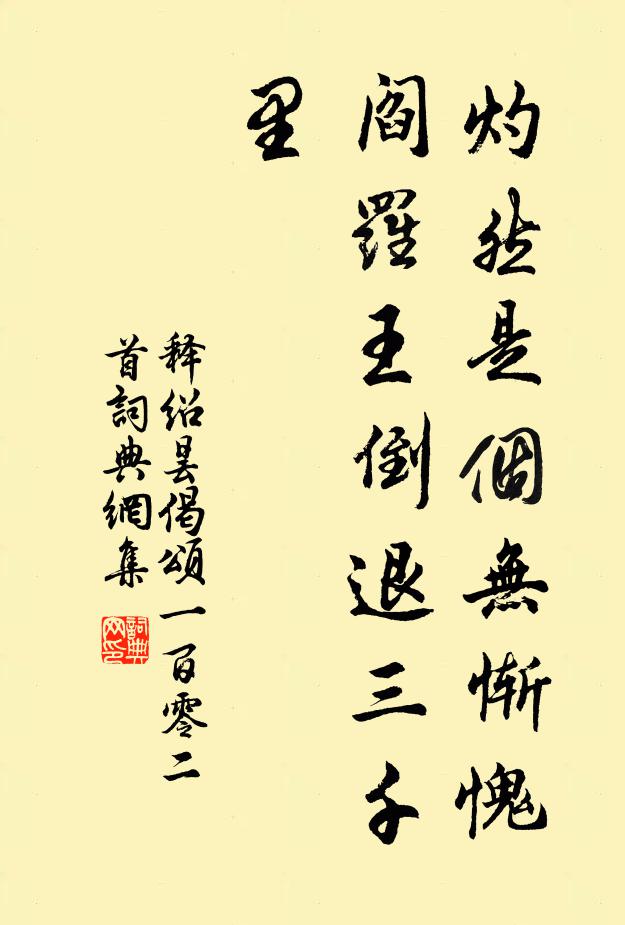 灼然是個無慚愧
閻羅王倒退三千
里
释绍昙偈頌一百零二
首詞典網集
詞典网印